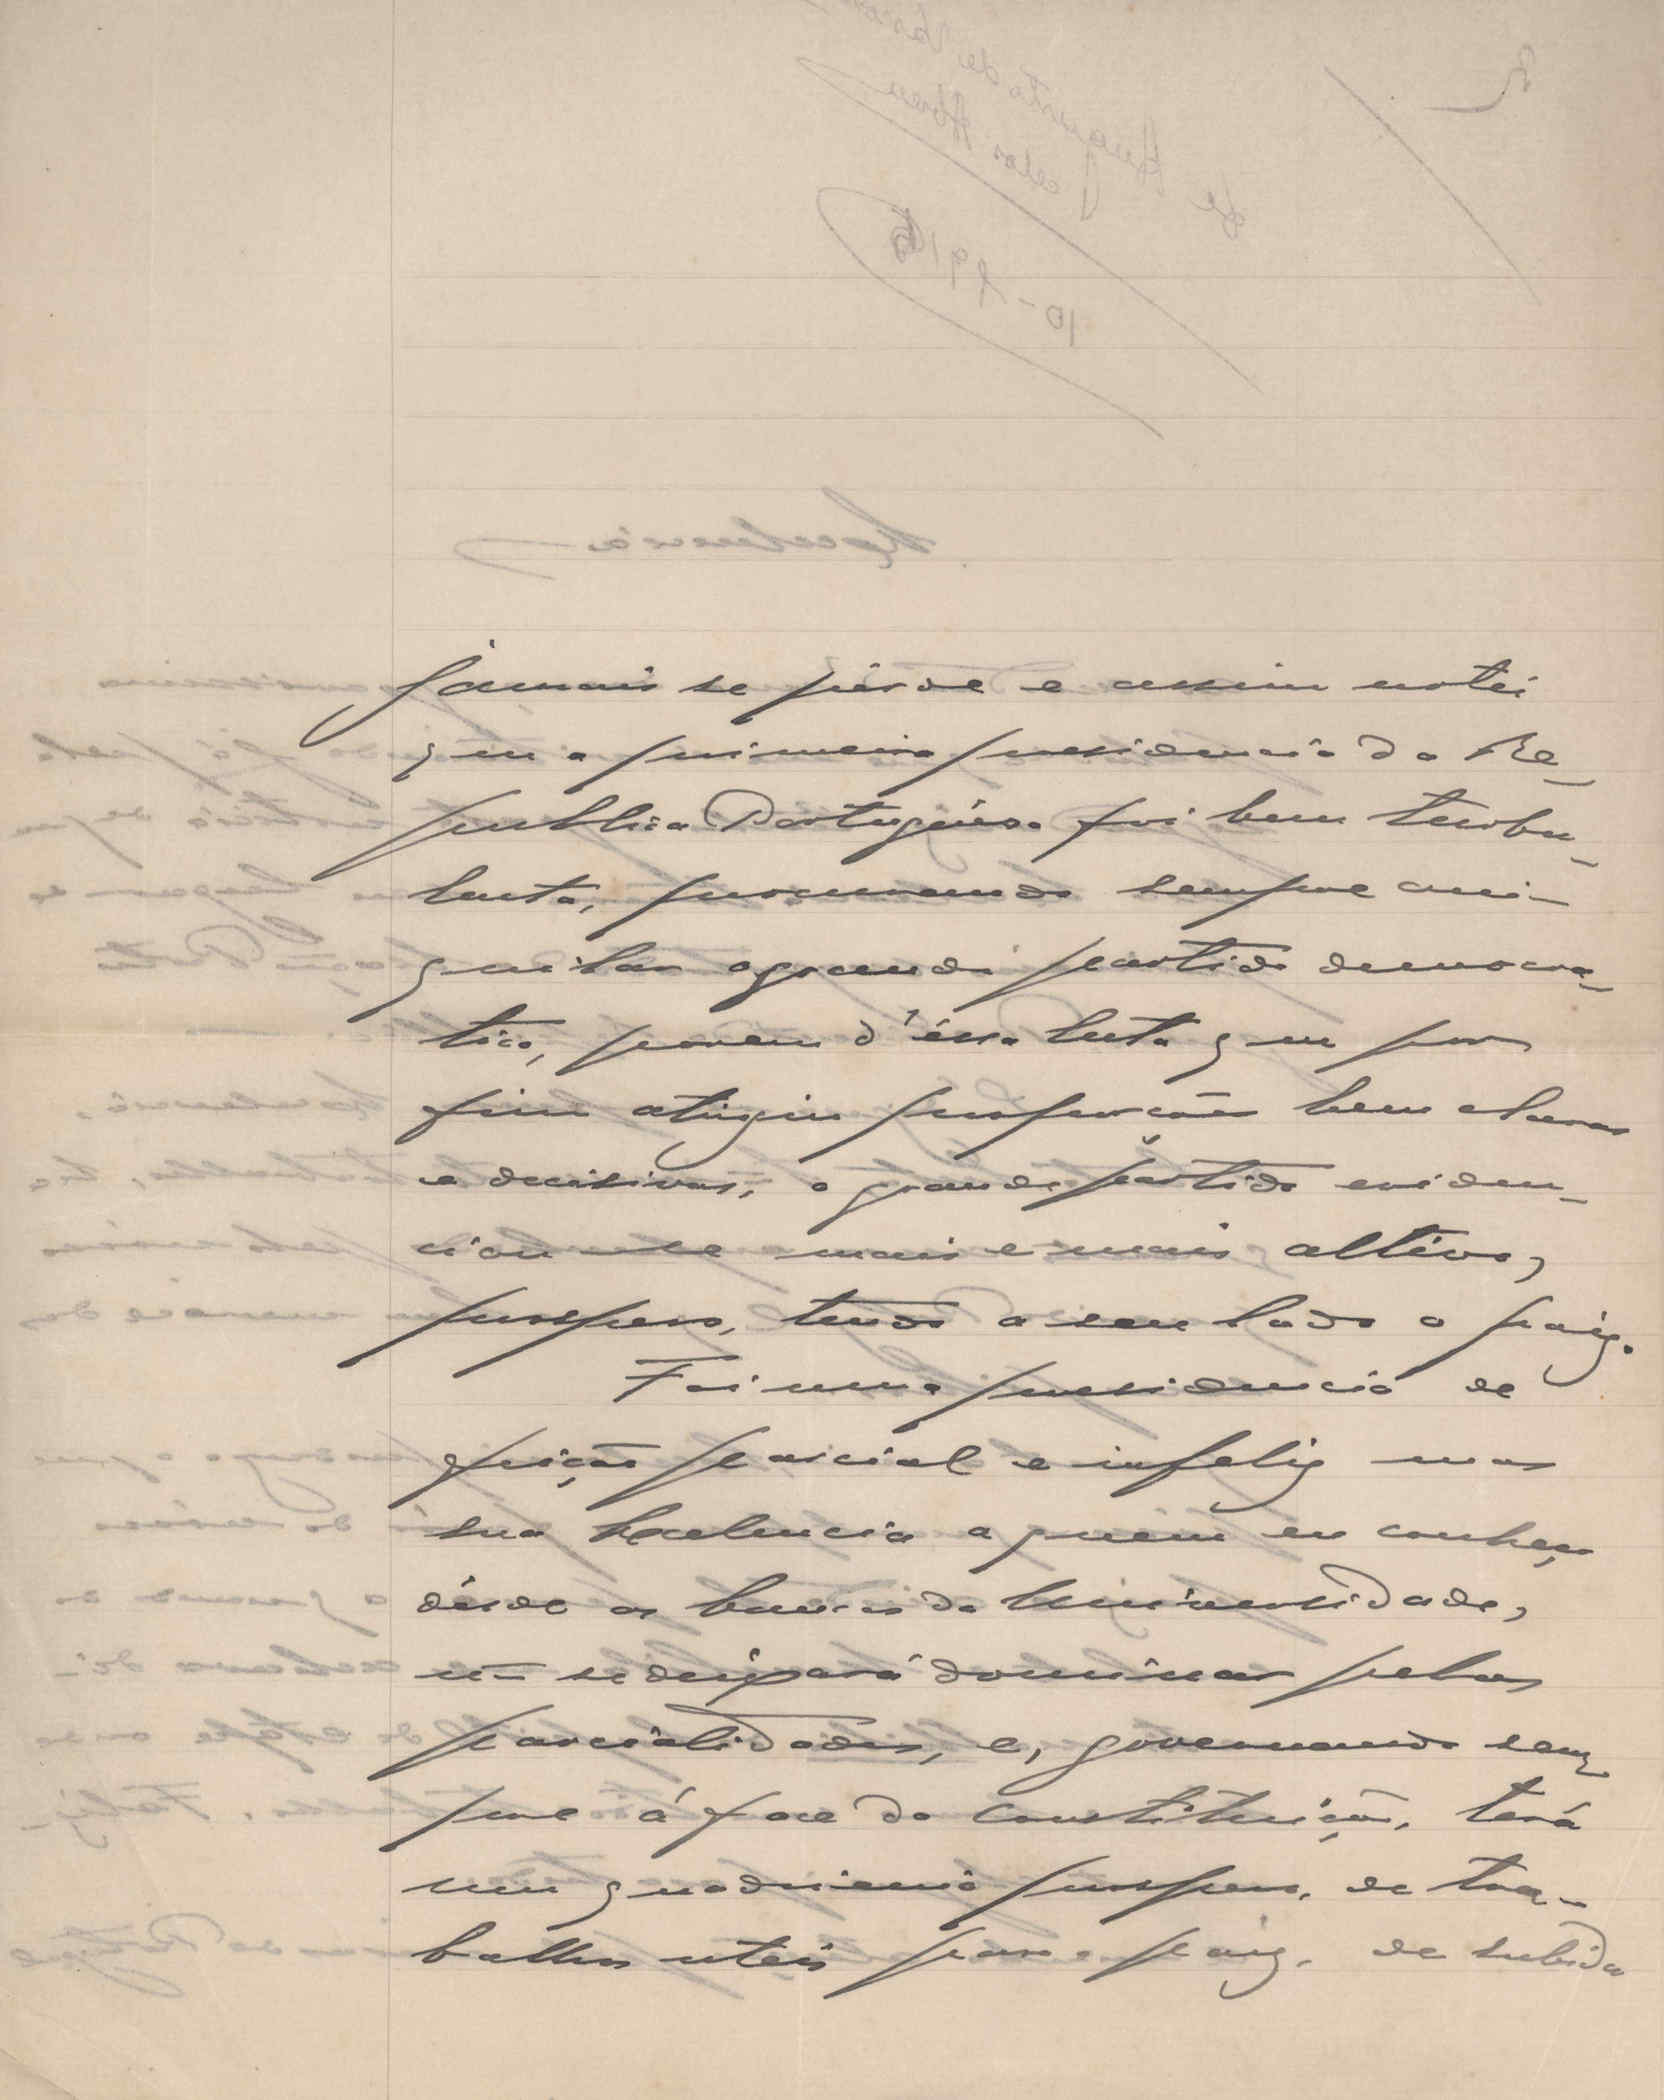 jamais se pérde e assim notei
que a primeira presidencia da Re-
publica Portuguêsa foi bem turbu-
lenta, procurando sempre ani-
quilar o grande partido democra-
tico, porem d'éssa luta que por
fim atingiu proporcões bem claras
e decisivas, o grande partido eviden-
ciou-se mais e mais altivo,
prospero, tendo a seu lado o paiz.
Foi uma presidencia de
feição parcial e infeliz mas
sua Excelencia a quem eu conheço
désde os bancos da Universidade,
não se deixará dominar pelas
parcialidades, e, governando sem-
pre á face da Constituição, terá
um quadrienio prospero, de tra-
balhos uteis para o paiz, de subida